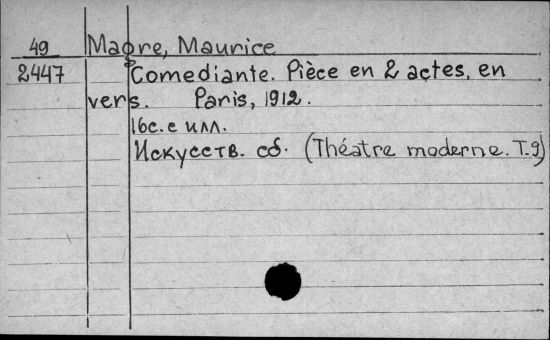 49 Magre, Maurice
2447 Comediante. Pièce en 2 actes, en
vers. Paris, 1912.
16с. с илл.
Искусств. сб. (Théatre moderne. T.9)